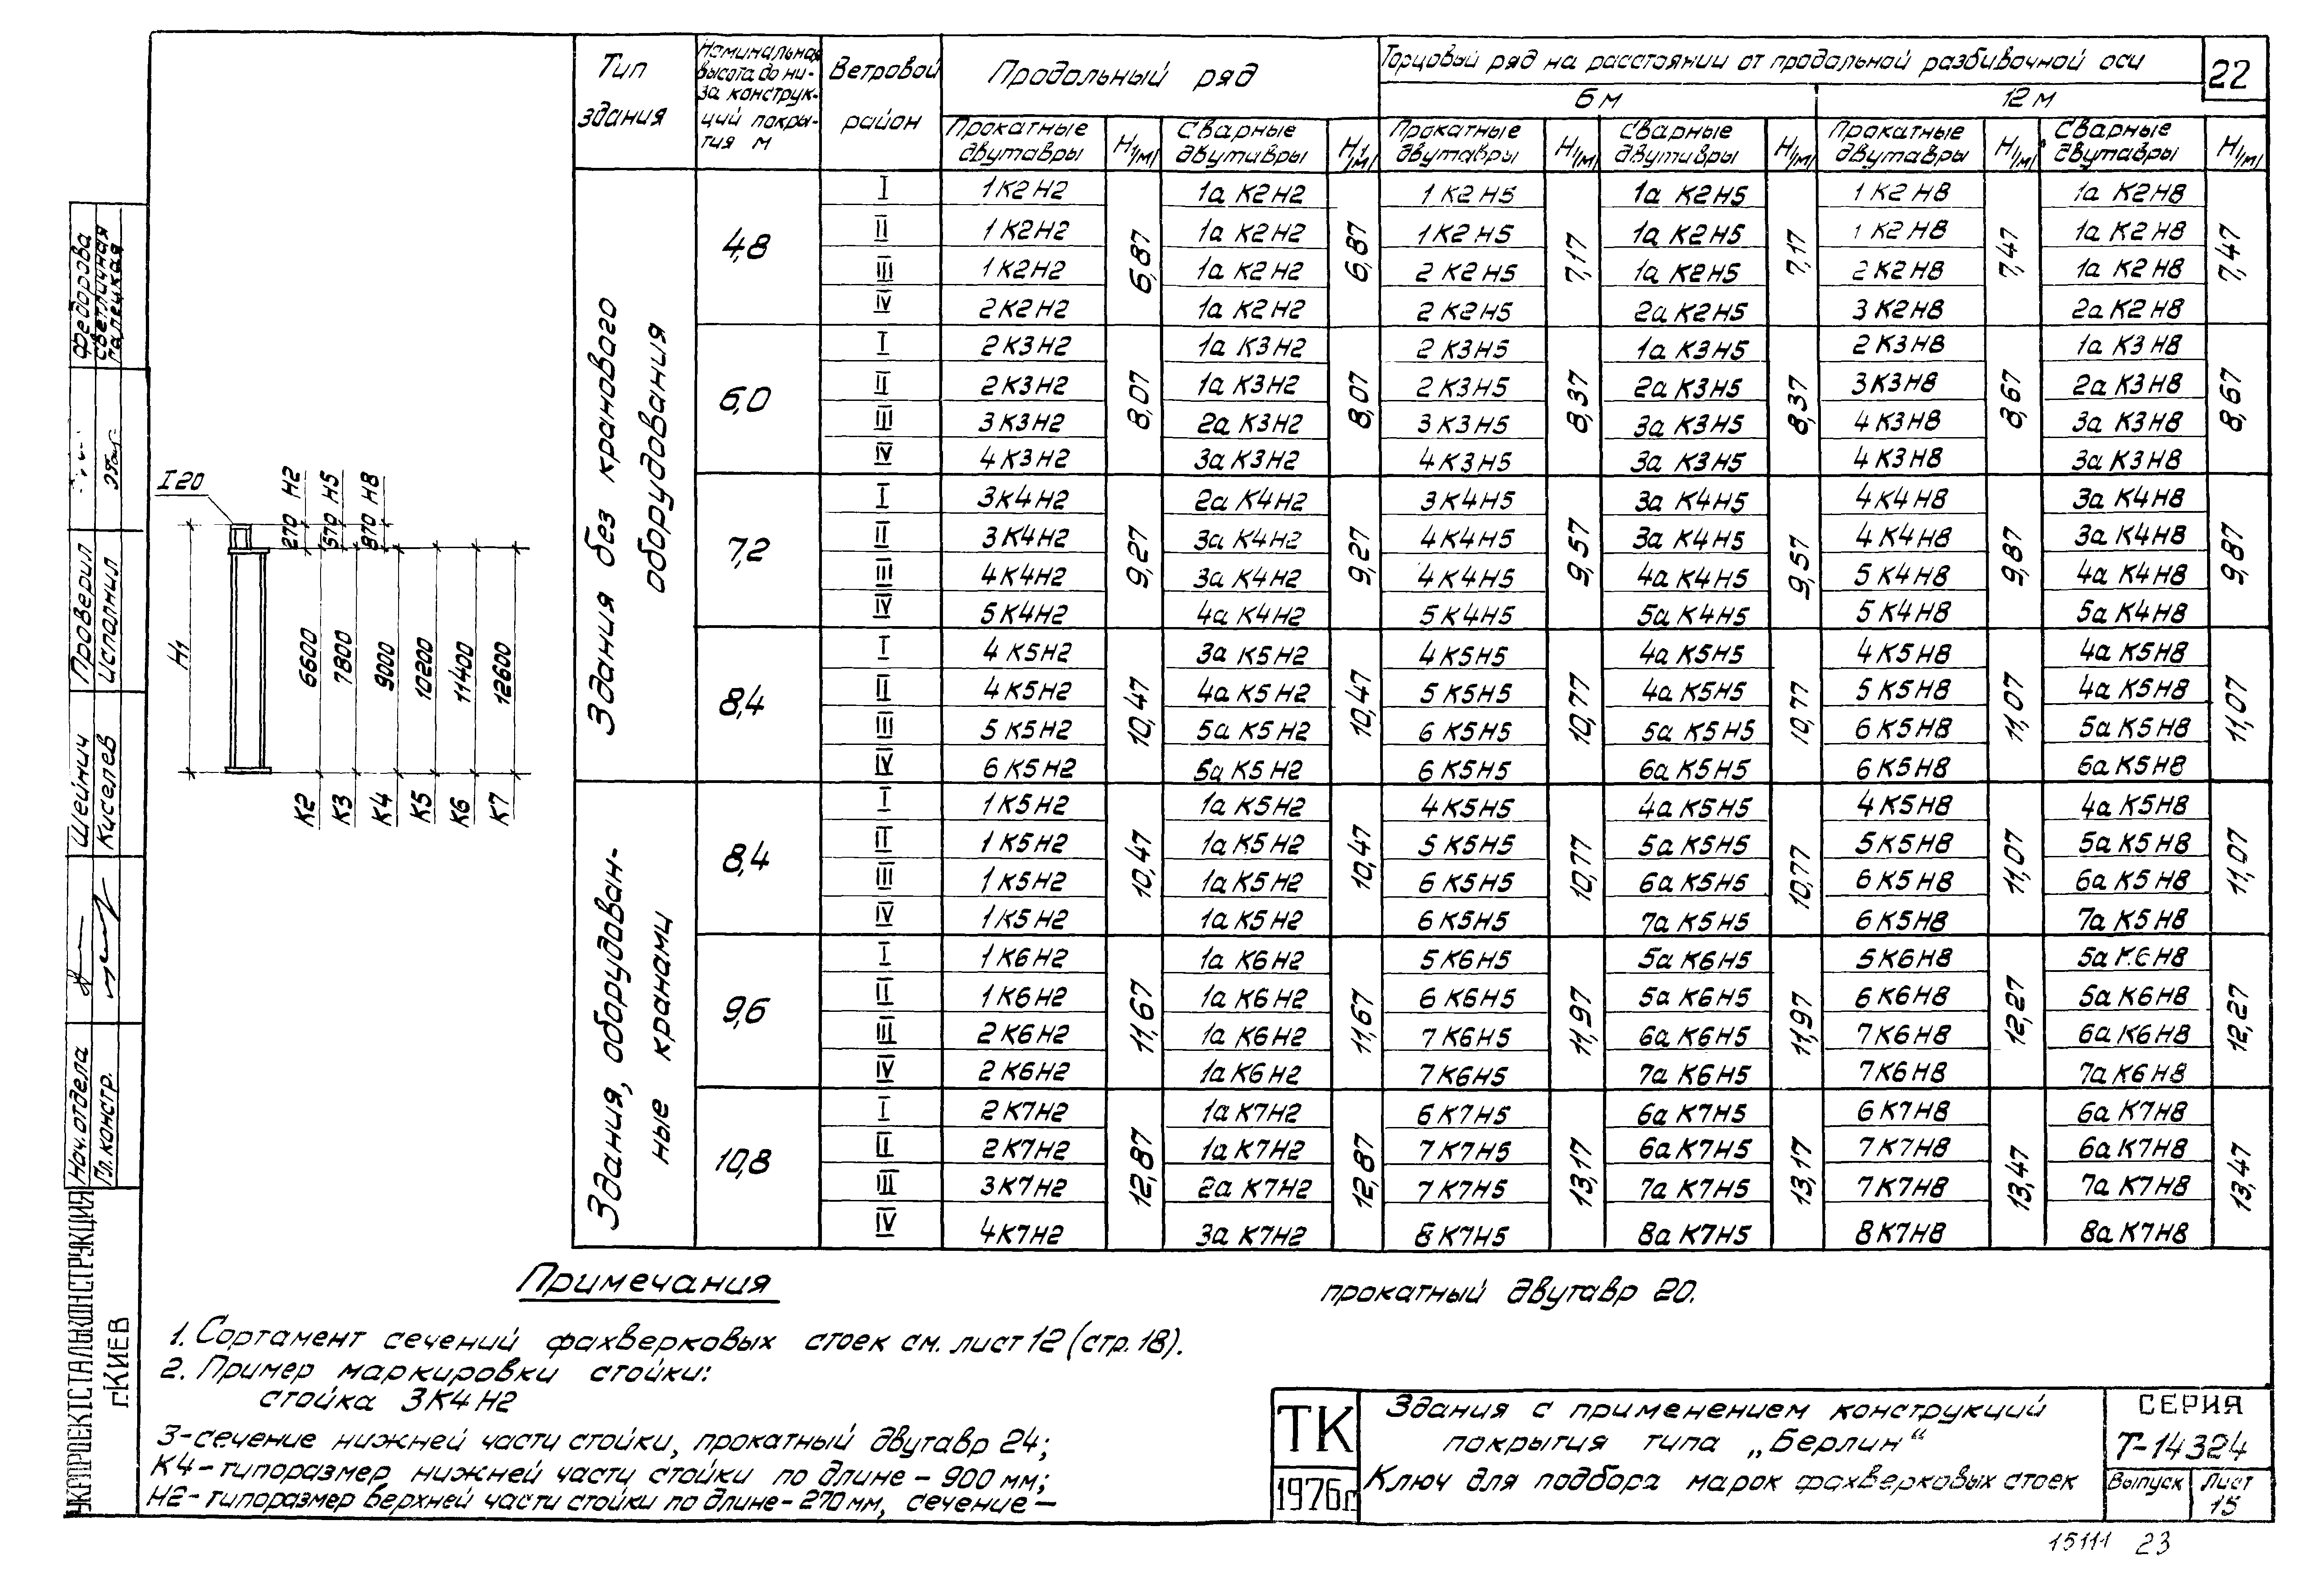 Тип здания | Номинальная высота до низа конструкций покрытия м | Ветровой район | Продольный ряд | Торцовый ряд на расстоянии от продольной разбивочной оси | 22
6 м | 12 м
Прокатные двутавры | H1(м) | Сварные двутавры | H1(м) | Прокатные двутавры | H1(м) | Сварные двутавры | H1(м) | Прокатные двутавры | H1(м) | Сварные двутавры | H1(м)
Здания без кранового оборудования
4,8 | 6,87 | 6,87 | 7,17 | 7,17 | 7,47 | 7,47
I | 1К2Н2 | 1а К2Н2 | 1К2Н5 | 1а К2Н5 | 1К2Н8 | 1а К2Н8
II | 1К2Н2 | 1а К2Н2 | 1К2Н5 | 1а К2Н5 | 1К2Н8 | 1а К2Н8
III | 1К2Н2 | 1а К2Н2 | 2К2Н5 | 1а К2Н5 | 2К2Н8 | 1а К2Н8
IV | 2К2Н2 | 1а К2Н2 | 2К2Н5 | 2а К2Н5 | 3К2Н8 | 2а К2Н8
6,0 | 8,07 | 8,07 | 8,37 | 8,37 | 8,67 | 8,67
I | 2К3Н2 | 1а К3Н2 | 2К3Н5 | 1а К3Н5 | 2К3Н8 | 1а К3Н8
II | 2К3Н2 | 1а К3Н2 | 2К3Н5 | 2а К3Н5 | 3К3Н8 | 2а К3Н8
III | 3К3Н2 | 2а К3Н2 | 3К3Н5 | 3а К3Н5 | 4К3Н8 | 3а К3Н8
IV | 4К3Н2 | 3а К3Н2 | 4К3Н5 | 3а К3Н5 | 4К3Н8 | 3а К3Н8
7,2 | 9,27 | 9,27 | 9,57 | 9,57 | 9,87 | 9,87
I | 3К4Н2 | 2а К4Н2 | 3К4Н5 | 3а К4Н5 | 4К4Н8 | 3а К4Н8
II | 3К4Н2 | 3а К4Н2 | 4К4Н5 | 3а К4Н5 | 4К4Н8 | 3а К4Н8
III | 4К4Н2 | 3а К4Н2 | 4К4Н5 | 4а К4Н5 | 5К4Н8 | 4а К4Н8
IV | 5К4Н2 | 4а К4Н2 | 5К4Н5 | 5а К4Н5 | 5К4Н8 | 5а К4Н8
8,4 | 10,47 | 10,47 | 10,77 | 10,77 | 11,07 | 11,07
I | 4К5Н2 | 3а К5Н2 | 4К5Н5 | 4а К5Н5 | 4К5Н8 | 4а К5Н8
II | 4К5Н2 | 4а К5Н2 | 5К5Н5 | 4а К5Н5 | 5К5Н8 | 4а К5Н8
III | 5К5Н2 | 5а К5Н2 | 6К5Н5 | 5а К5Н5 | 6К5Н8 | 5а К5Н8
IV | 6К5Н2 | 5а К5Н2 | 6К5Н5 | 6а К5Н5 | 6К5Н8 | 6а К5Н8
Здания, оборудованные кранами
8,4 | 10,47 | 10,47 | 10,77 | 10,77 | 11,07 | 11,07
I | 1К5Н2 | 1а К5Н2 | 4К5Н5 | 4а К5Н5 | 4К5Н8 | 4а К5Н8
II | 1К5Н2 | 1а К5Н2 | 5К5Н5 | 5а К5Н5 | 5К5Н8 | 5а К5Н8
III | 1К5Н2 | 1а К5Н2 | 6К5Н5 | 6а К5Н5 | 6К5Н8 | 6а К5Н8
IV | 1К5Н2 | 1а К5Н2 | 6К5Н5 | 7а К5Н5 | 6К5Н8 | 7а К5Н8
9,6 | 11,67 | 11,67 | 11,97 | 11,97 | 12,27 | 12,27
I | 1К6Н2 | 1а К6Н2 | 5К6Н5 | 5а К6Н5 | 5К6Н8 | 5а К6Н8
II | 1К6Н2 | 1а К6Н2 | 6К6Н5 | 5а К6Н5 | 6К6Н8 | 5а К6Н8
III | 2К6Н2 | 1а К6Н2 | 7К6Н5 | 6а К6Н5 | 7К6Н8 | 6а К6Н8
IV | 2К6Н2 | 1а К6Н2 | 7К6Н5 | 7а К6Н5 | 7К6Н8 | 7а К6Н8
10,8 | 12,87 | 12,87 | 13,17 | 13,17 | 13,47 | 13,47
I | 2К7Н2 | 1а К7Н2 | 6К7Н5 | 6а К7Н5 | 6К7Н8 | 6а К7Н8
II | 2К7Н2 | 1а К7Н2 | 7К7Н5 | 6а К7Н5 | 7К7Н8 | 6а К7Н8
III | 3К7Н2 | 2а К7Н2 | 7К7Н5 | 7а К7Н5 | 7К7Н8 | 7а К7Н8
IV | 4К7Н2 | 3а К7Н2 | 8К7Н5 | 8а К7Н5 | 8К7Н8 | 8а К7Н8
I20
270 Н2
570 Н5
870 Н8
H1
6600
7800
9000
10200
11400
12600
К2
К3
К4
К5
К6
К7
Примечания
1. Сортамент сечений фахверковых стоек см. лист 12 (стр. 18).
2. Пример маркировки стойки:
стойка 3К4Н2
3-сечение нижней части стойки, прокатный двутавр 24;
К4-типоразмер нижней части стойки по длине - 900 мм;
Н2-типоразмер верхней части стойки по длине - 270 мм, сечение -
прокатный двутавр 20.
ТК
1976г
Здания с применением конструкций
покрытия типа „Берлин“
Ключ для подбора марок фахверковых стоек
СЕРИЯ
Т-14324
Выпуск
Лист
15
15111 23
УКРПРОЕКТСТАЛЬКОНСТРУКЦИЯ
г.КИЕВ
Нач.отдела
Гл.констр.
Шейнич
Киселев
Проверил
Исполнил
Федорова
Светличная
Галецкая